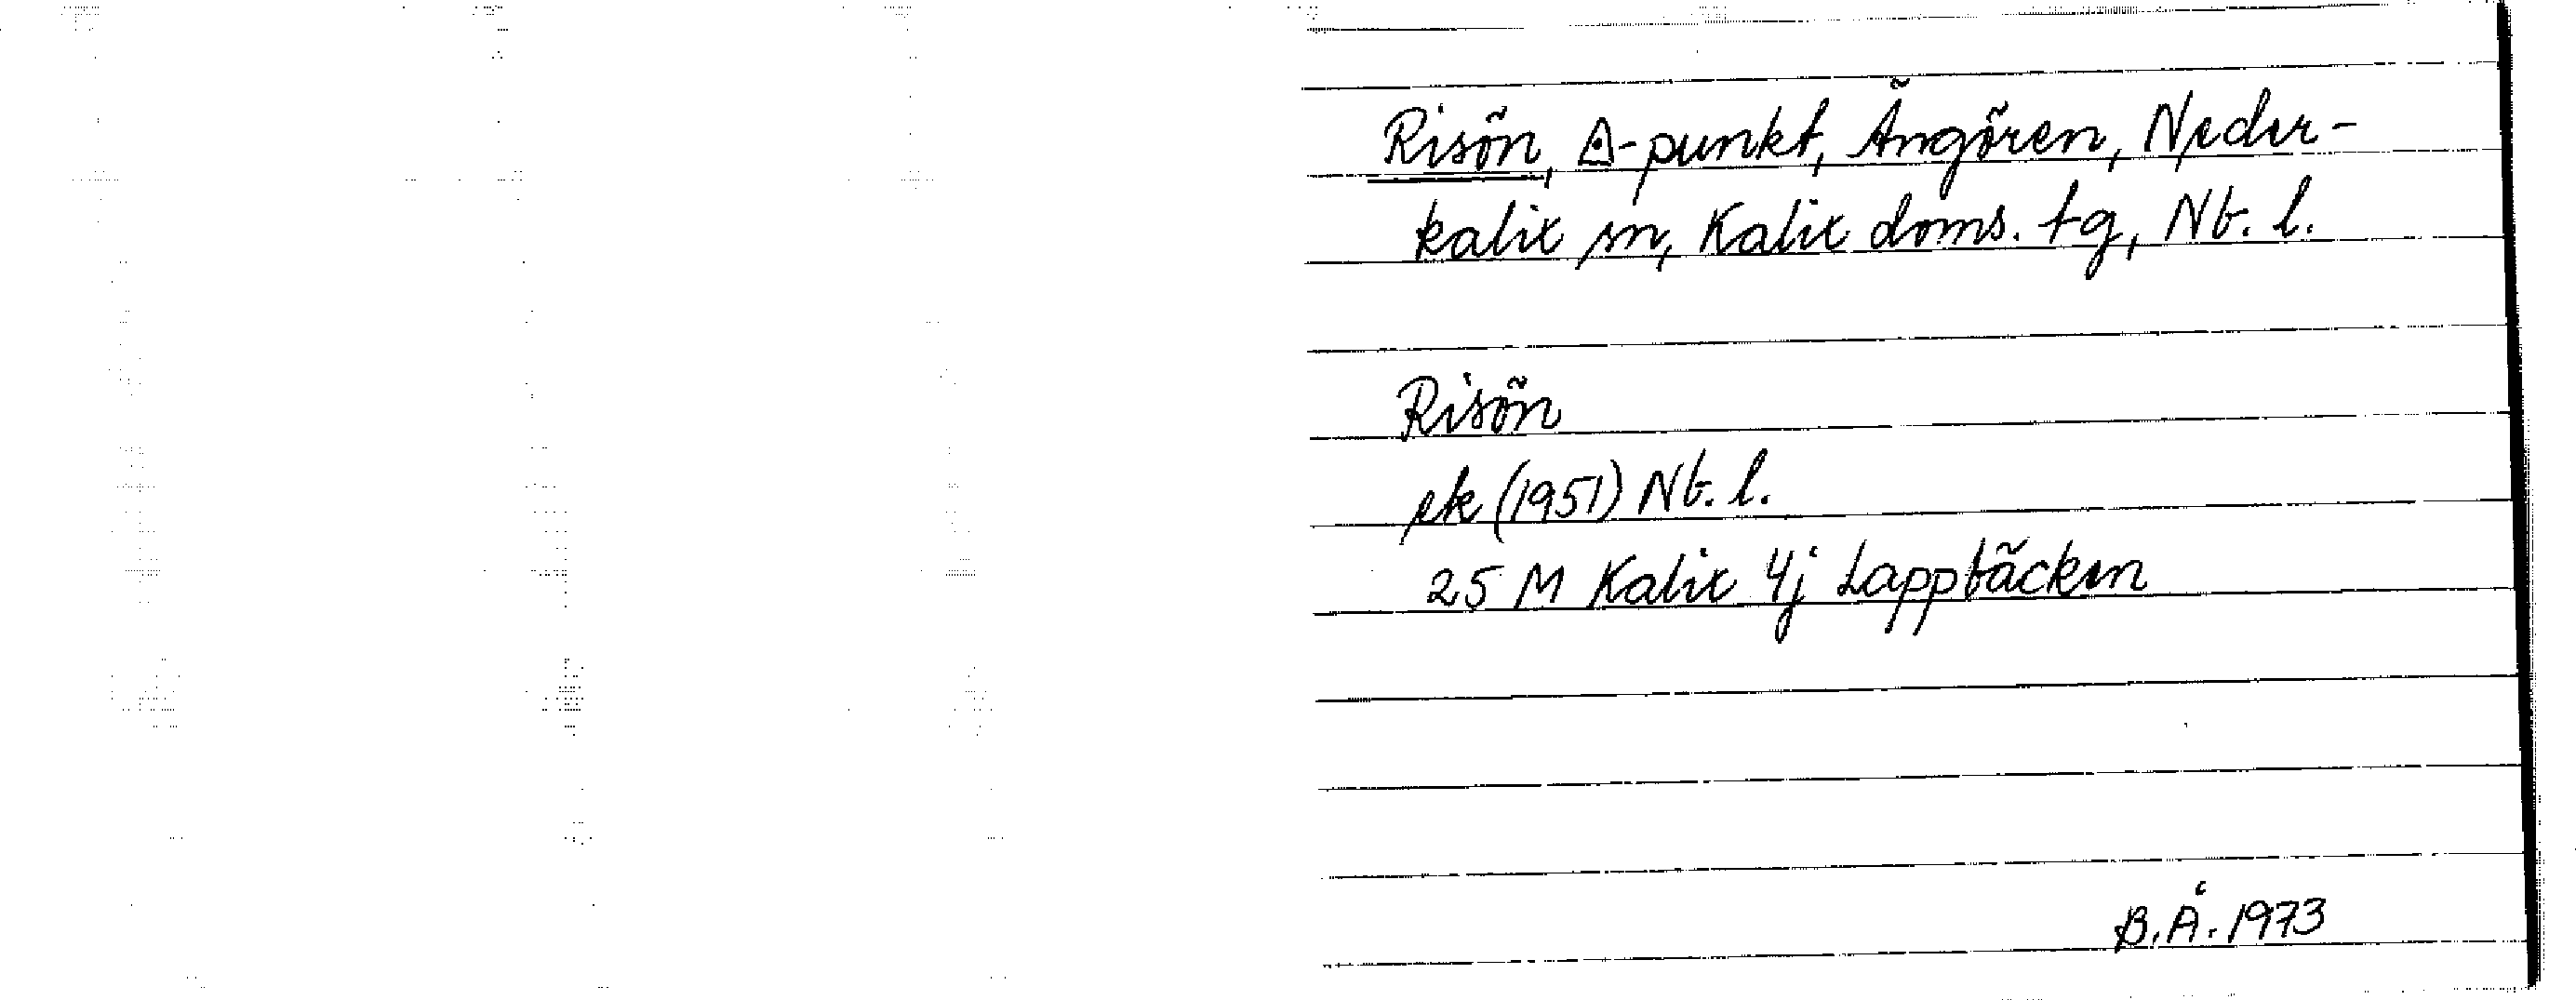 Risön, ◬-punkt, Ängören, Neder-
kalix sn, Kalix doms. tg, Nb. l.
Risön
ek (1951) Nb. l.
25 M Kalix 4j Lappbäcken
B.Å. 1973